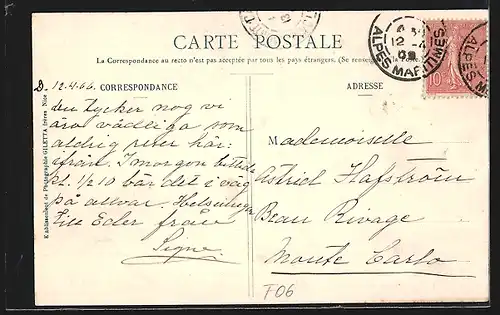 CARTE POSTALE
La Correspondance au recto n'est pas acceptée par tous les pays étrangers. (Se renseigner à la Poste.)
CORRESPONDANCE
ADRESSE
D. 12.4.06.
Du tycker nog vi
äro vådliga som
aldrig reser här-
ifrån. I morgon bittida
kl. 1/2 10 bär det i väg
på allvar. Helsningar
till Eder från
Signe.
Mademoiselle
Astrid Hafström
Beau Rivage
Monte Carlo
F06
Etablissement de Photographie GILETTA frères Nice
12 -4
ALPES MAR
10